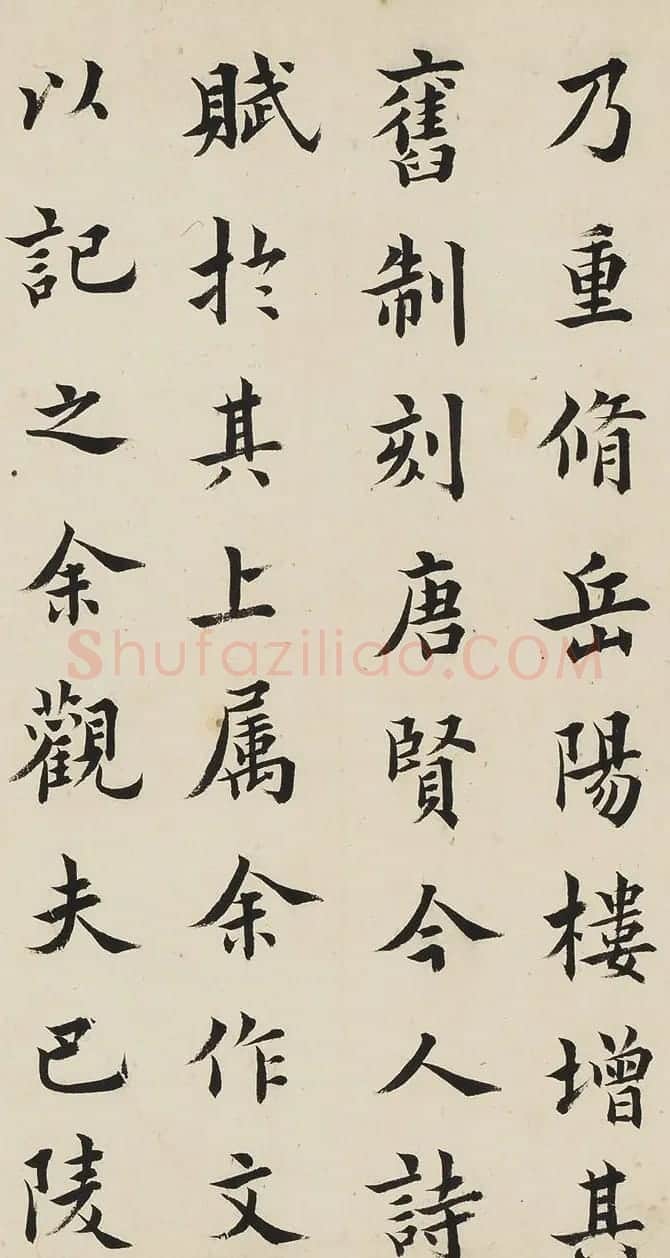 乃重脩岳陽樓增其
舊制刻唐賢今人詩
賦於其上属余作文
以記之余觀夫巴陵
Shufaziliao.COM